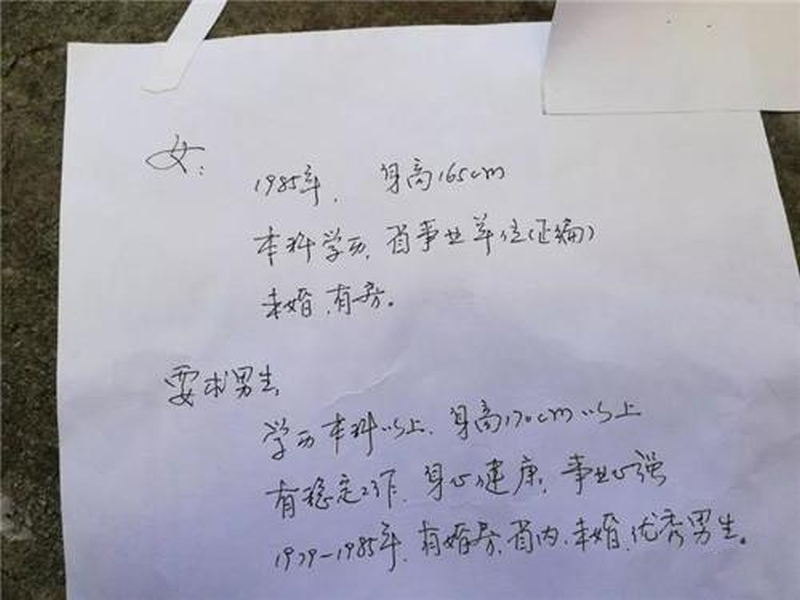 女：
1985年， 身高165cm
本科学历，省事业单位(正编)
未婚，有房。
要求男生，
学历本科以上，身高170cm以上
有稳定工作，身心健康，事业心强
1979-1985年，有婚房，省内，未婚，优秀男生。